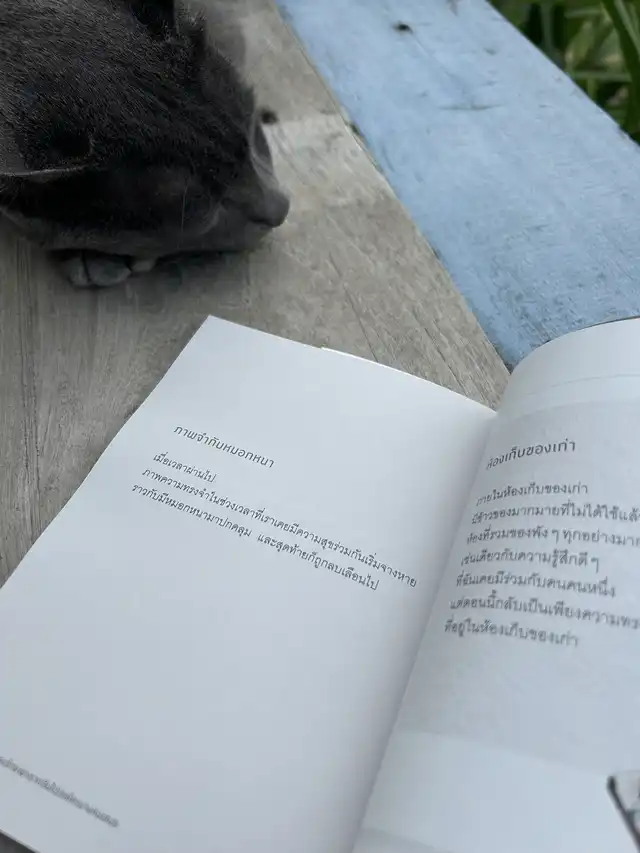 ภาพจำกับหมอกหนา
เมื่อเวลาผ่านไป
ภาพความทรงจำในช่วงเวลาที่เราเคยมีความสุขร่วมกันเริ่มจางหาย
ราวกับมีหมอกหนามาปกคลุม และสุดท้ายก็ถูกลบเลือนไป
ห้องเก็บของเก่า
ภายในห้องเก็บของเก่า
มีข้าวของมากมายที่ไม่ได้ใช้แล้ว
ห้องที่รวมของพัง ๆ ทุกอย่างมาก
เช่นเดียวกับความรู้สึกดี ๆ
ที่ฉันเคยมีร่วมกับคนคนหนึ่ง
แต่ตอนนี้กลับเป็นเพียงความทรง
ที่อยู่ในห้องเก็บของเก่า